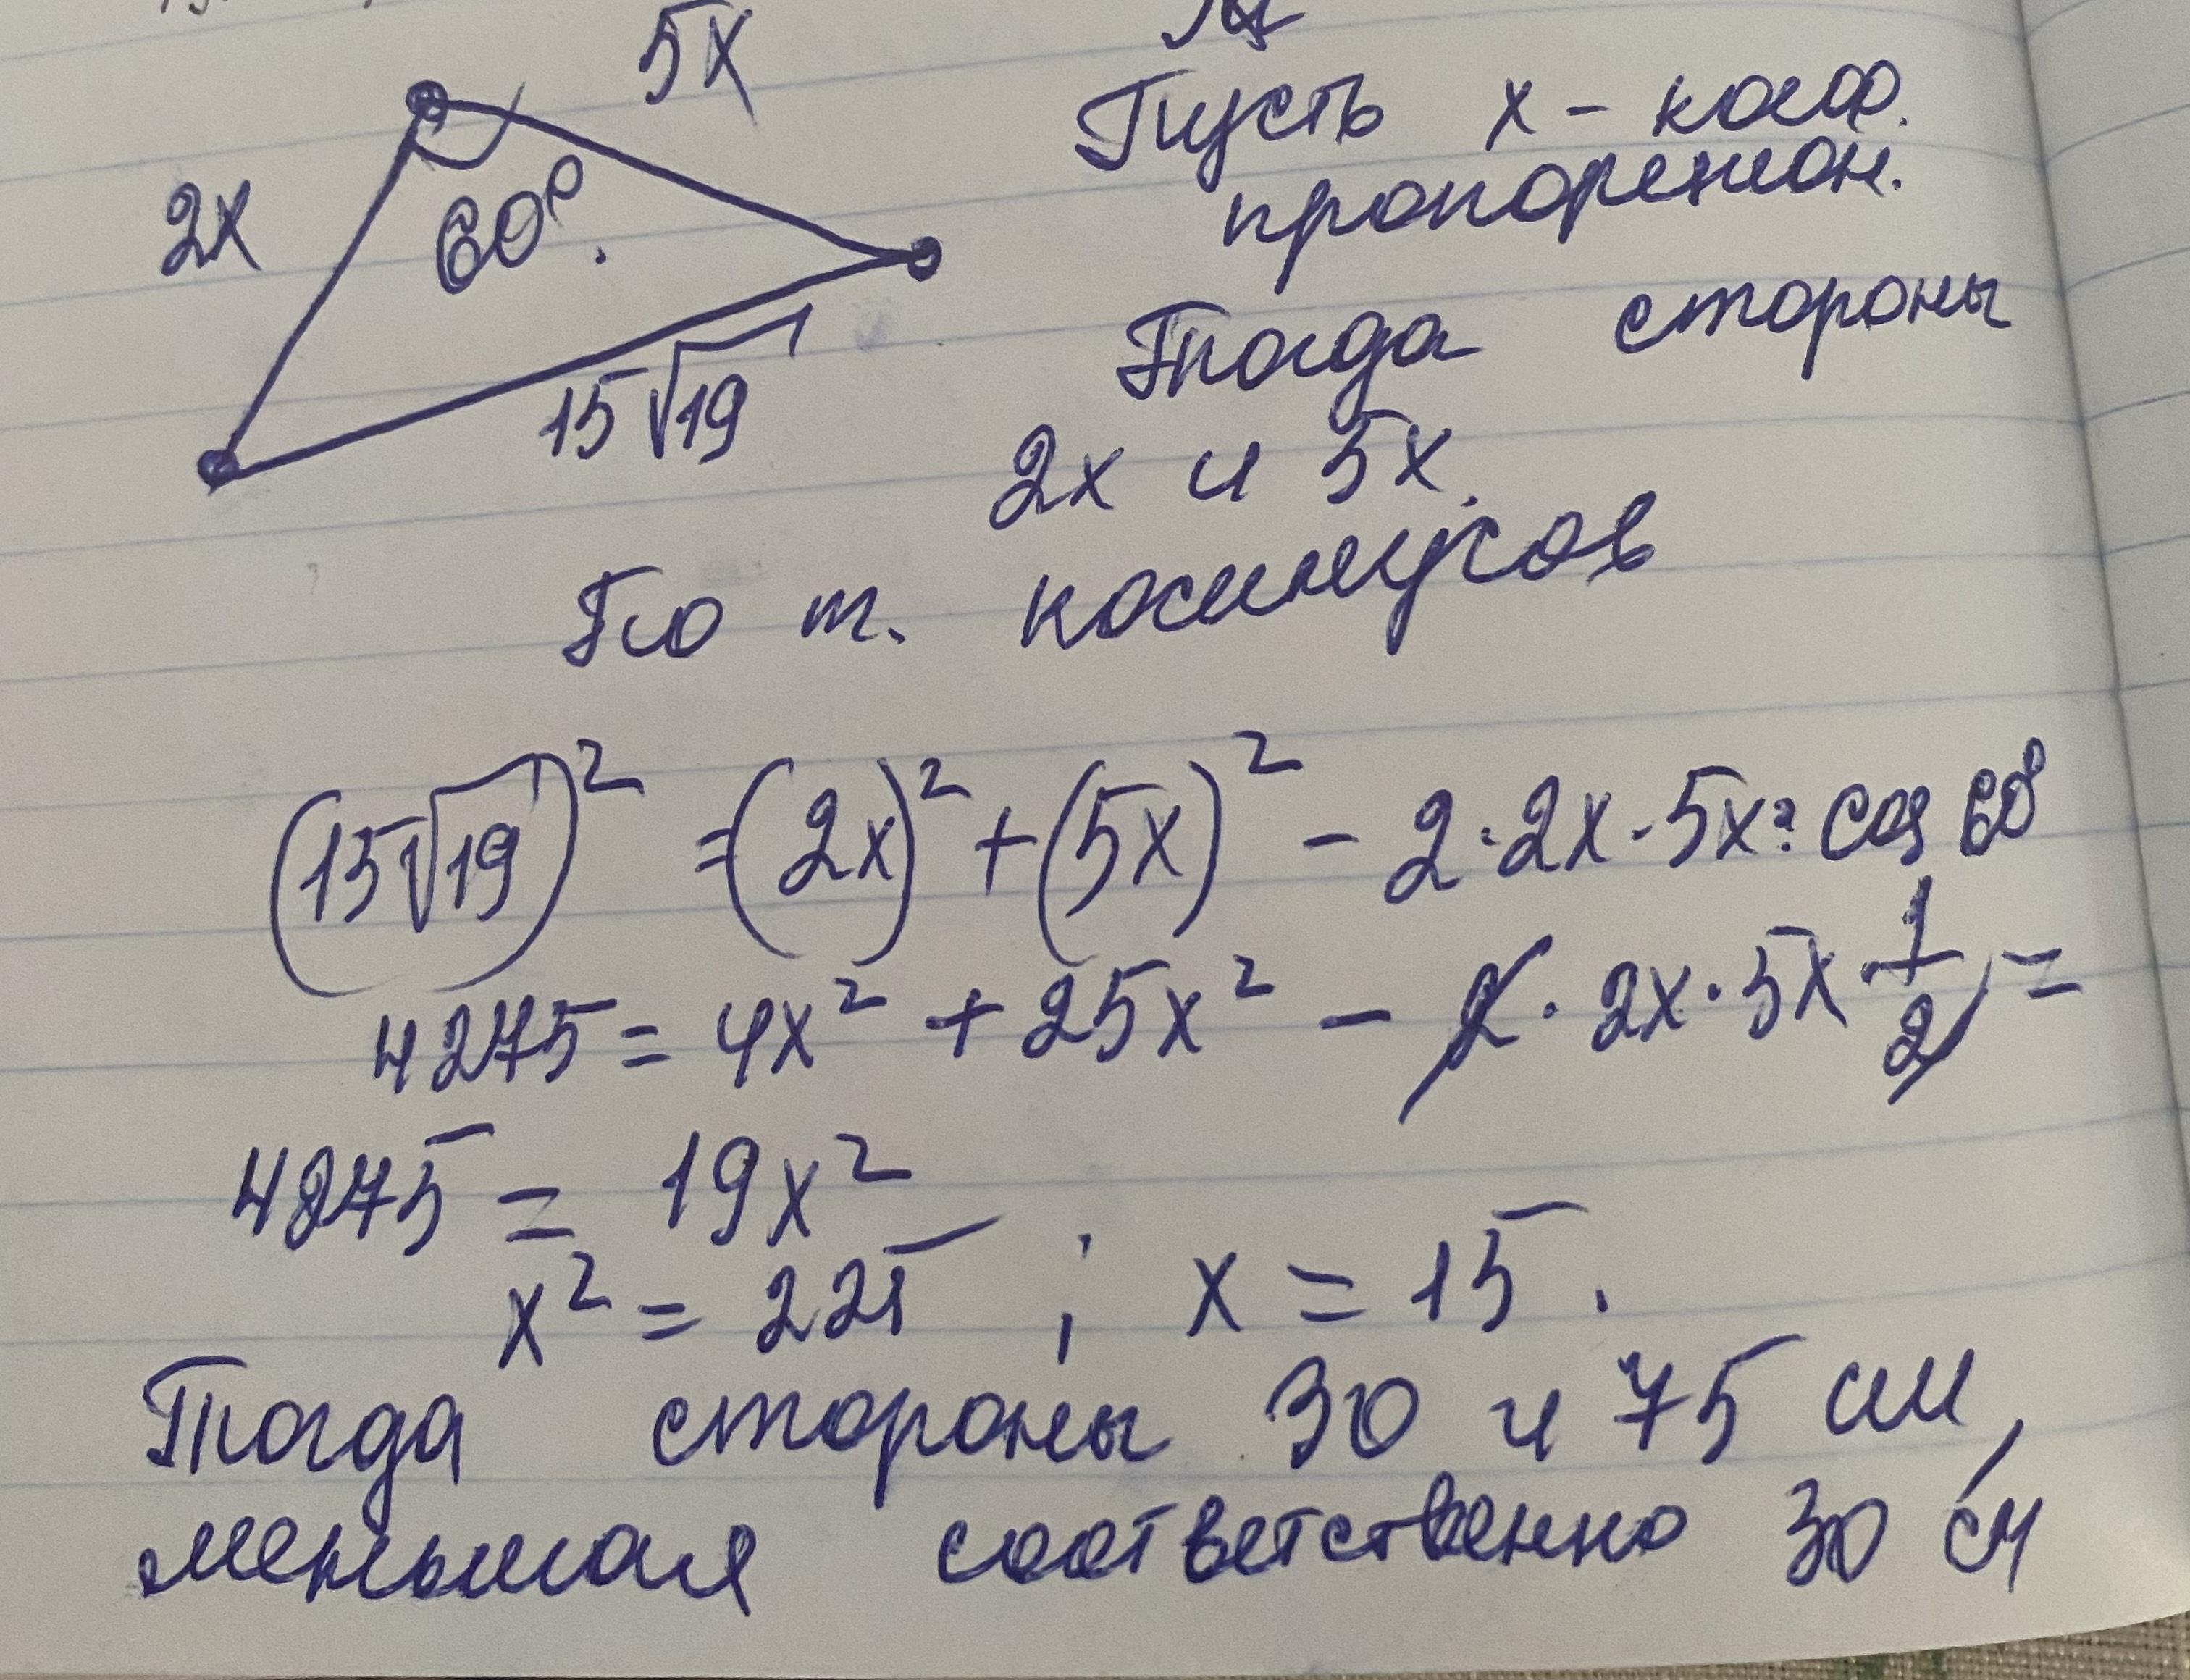 5x
2x
60°.
15√19
Пусть x - коэф.
пропорцион.
Тогда стороны
2x и 5x.
По т. косинусов
(15√19)² = (2x)² + (5x)² - 2·2x·5x· cos 60°
4275 = 4x² + 25x² - 2·2x·5x·1/2 =
4275 = 19x²
x² = 225 ; x = 15.
Тогда стороны 30 и 75 см,
меньшая соответственно 30 см